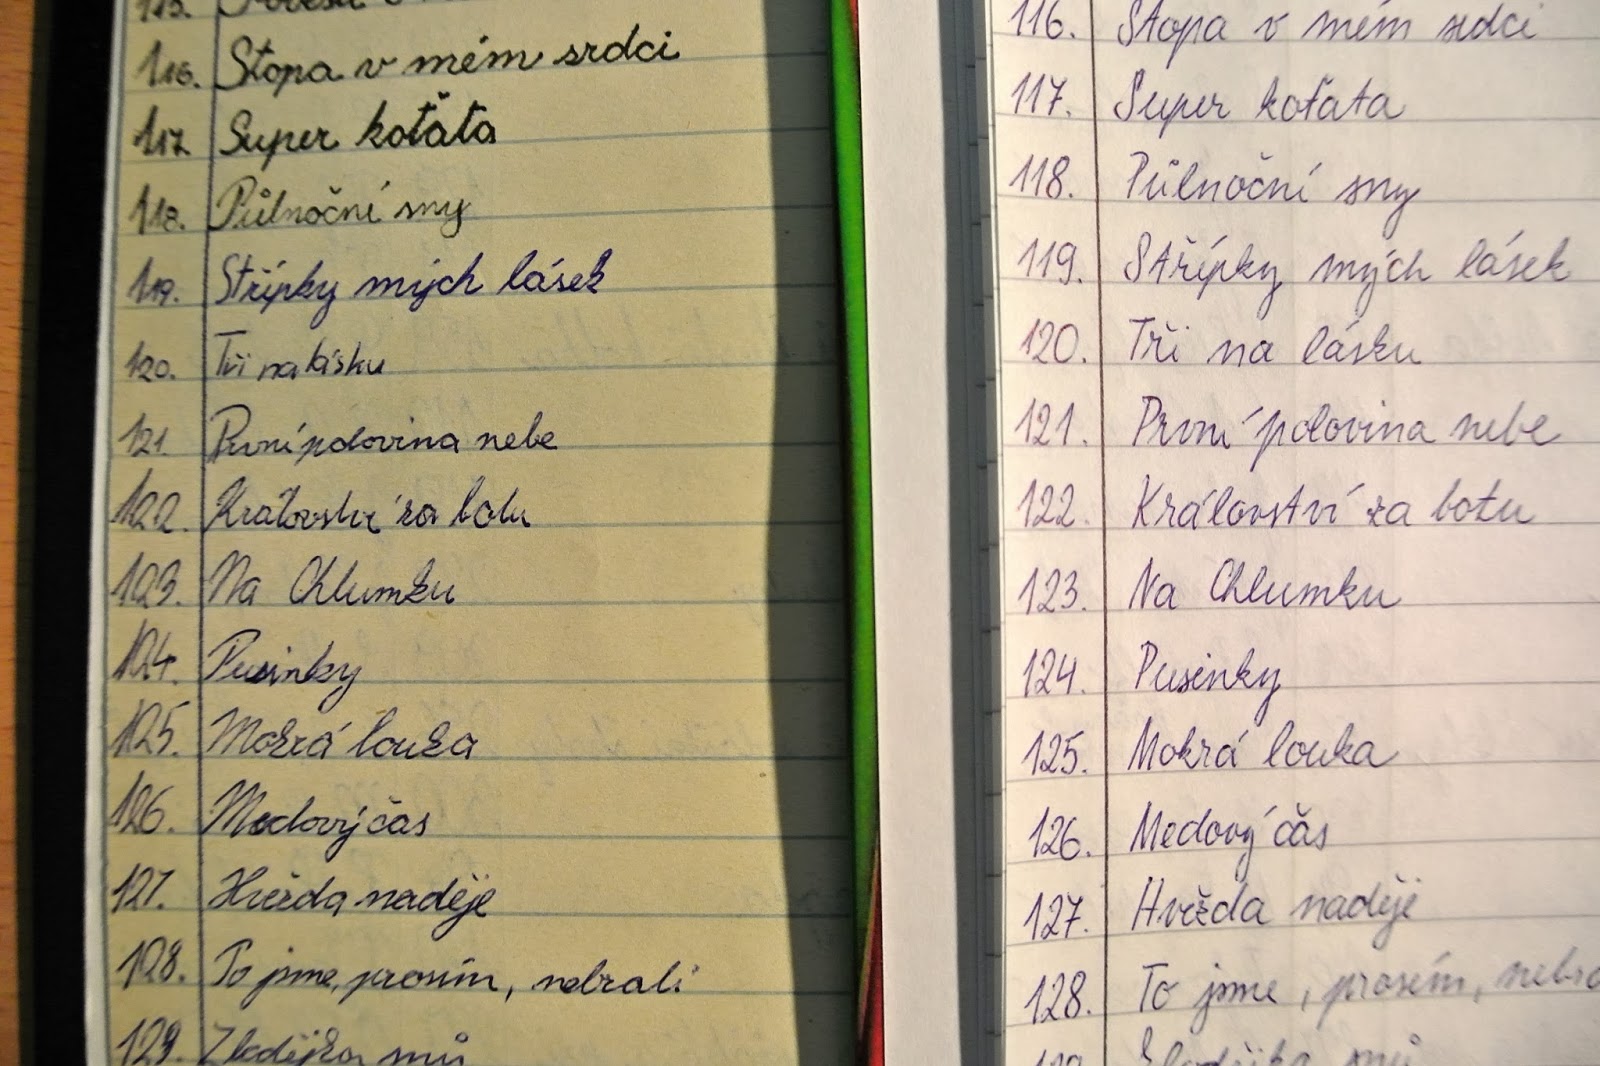 115.
116. Stopa v mém srdci
117. Super koťata
118. Půlnoční sny
119. Střípky mých lásek
120. Tři na lásku
121. První polovina nebe
122. Království za botu
123. Na Chlumku
124. Pusinky
125. Mokrá louka
126. Medový čas
127. Hvězda naděje
128. To jsme, prosím, nebrali
129. Zlodějka snů
116. Stopa v mém srdci
117. Super koťata
118. Půlnoční sny
119. Střípky mých lásek
120. Tři na lásku
121. První polovina nebe
122. Království za botu
123. Na Chlumku
124. Pusinky
125. Mokrá louka
126. Medový čas
127. Hvězda naděje
128. To jsme, prosím, nebra
129. Zlodějka snů